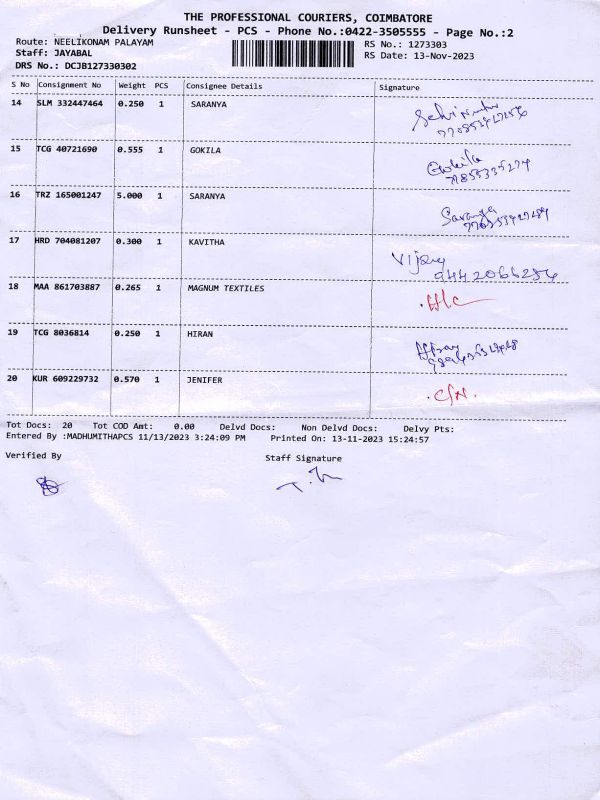 THE PROFESSIONAL COURIERS, COIMBATORE
Delivery Runsheet - PCS - Phone No.:0422-3505555 - Page No.:2
Route: NEELIKONAM PALAYAM
RS No.: 1273303
Staff: JAYABAL
RS Date: 13-Nov-2023
DRS No.: DCJB127330302
S No Consignment No Weight PCS Consignee Details Signature
14 SLM 332447464 0.250 1 SARANYA
15 TCG 40721690 0.555 1 GOKILA Gokila
16 TRZ 165001247 5.000 1 SARANYA Saranya
17 HRD 704081207 0.300 1 KAVITHA Vijay
9442066256
18 MAA 861703887 0.265 1 MAGNUM TEXTILES
19 TCG 8036814 0.250 1 HIRAN
20 KUR 609229732 0.570 1 JENIFER
Tot Docs: 20 Tot COD Amt: 0.00 Delvd Docs: Non Delvd Docs: Delvy Pts:
Entered By :MADHUMITHAPCS 11/13/2023 3:24:09 PM Printed On: 13-11-2023 15:24:57
Verified By Staff Signature